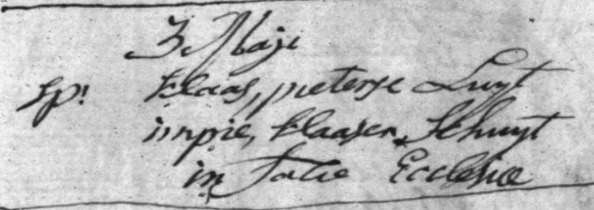 3 Maje
sp: klaas, pieterse Luyt
impie, klaasen Schuyt
in facie Ecclesiae